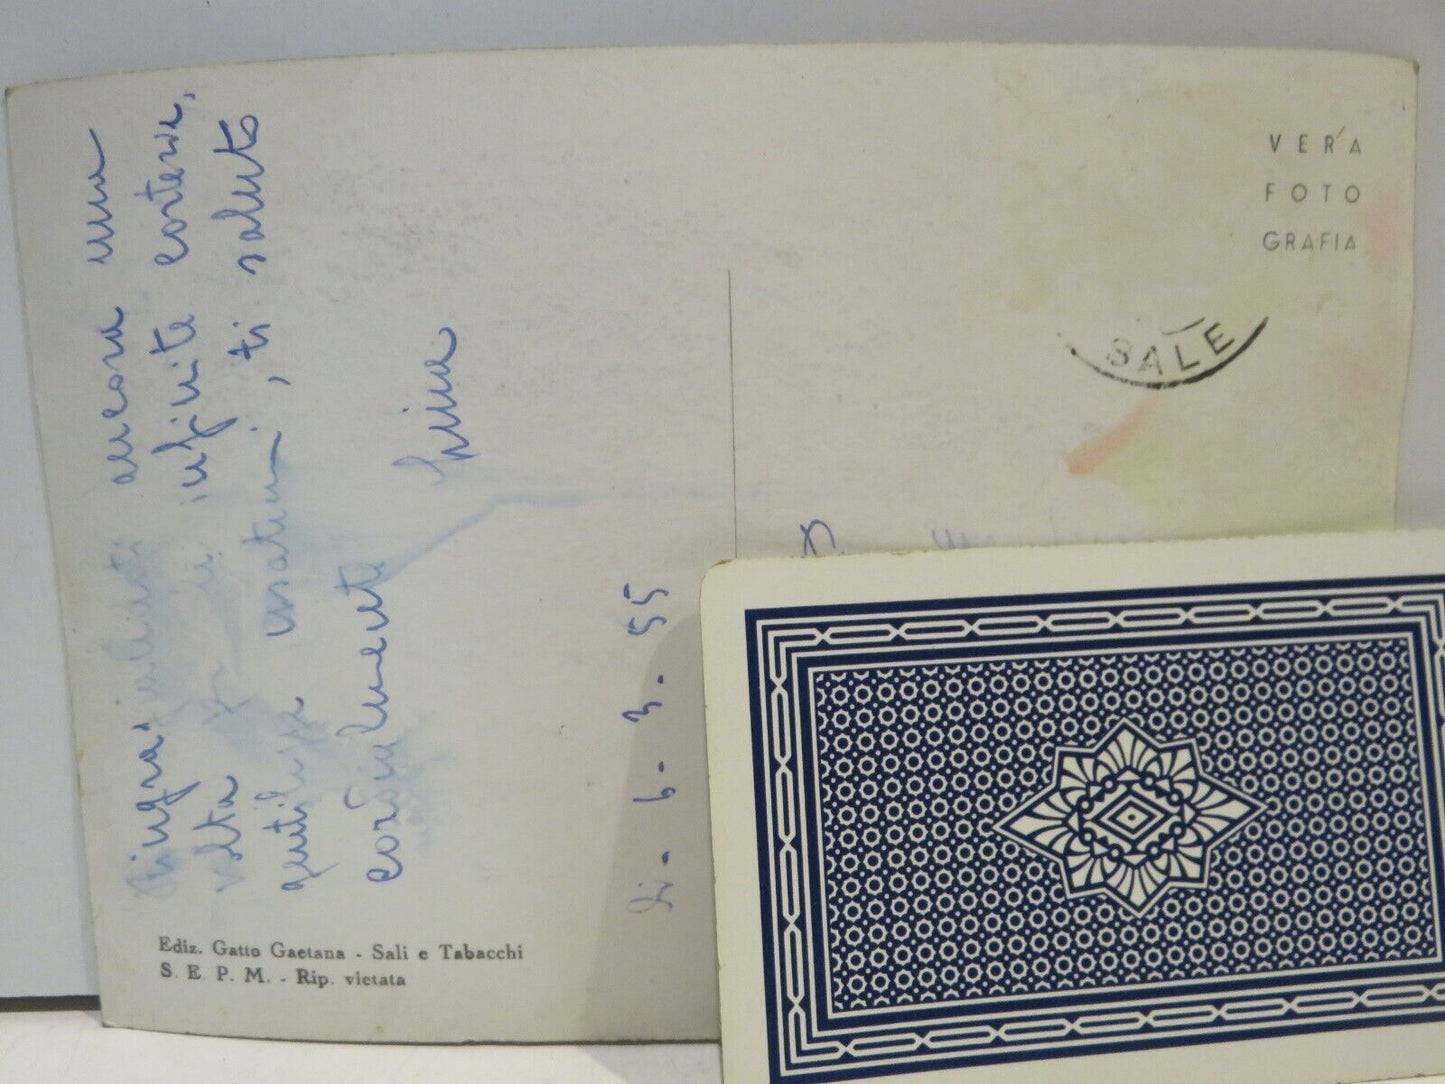 Ringraziandoti ancora una
volta di infinite cortesie,
usatemi, ti saluto
cordialmente
Lina
Li - 6 - 3 - 55
Ediz. Gatto Gaetana - Sali e Tabacchi
S. E. P. M. - Rip. vietata
VERA
FOTO
GRAFIA
SALE